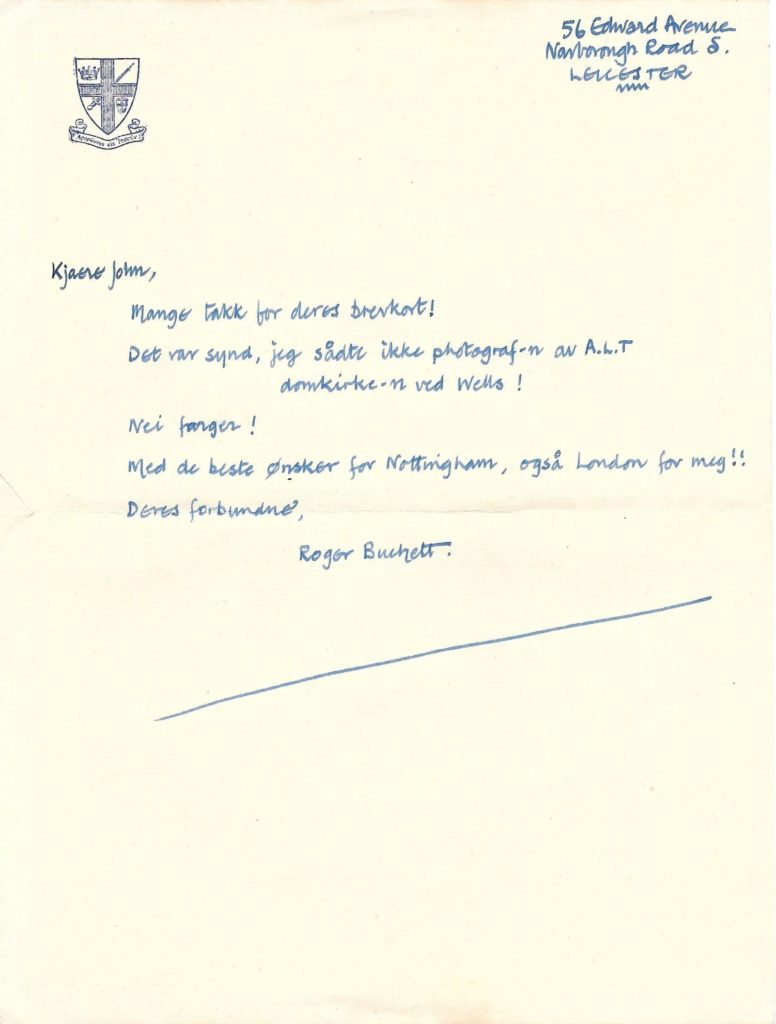 56 Edward Avenue
Narborough Road S.
LEICESTER
Kjaere John,
Mange takk for deres brevkort!
Det var synd, jeg sådte ikke photograf-n av A.L.T
domkirke-n ved Wells !
Nei farger !
Med de beste ønsker for Nottingham, også London for meg!!
Deres forbundne,
Roger